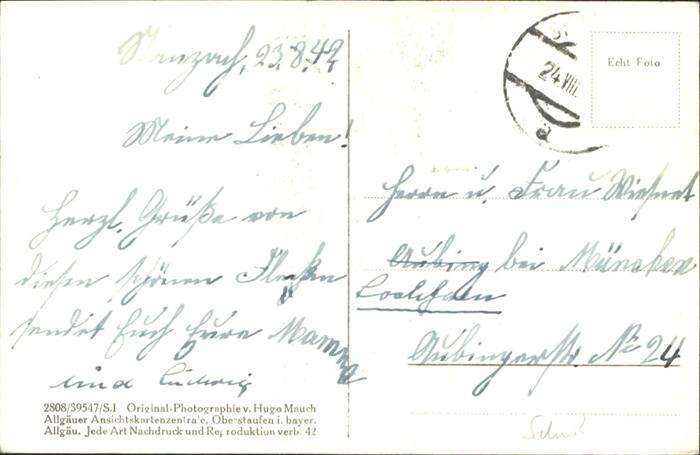 Stanzach, 23.8.42
Meine Lieben!
Herzl. Grüße von
diesem schönen Flecken
sendet Euch Eure Mamma
und Ludwig
2808/39547/S.I Original-Photographie v. Hugo Mauch
Allgäuer Ansichtskartenzentrale, Oberstaufen i. bayer.
Allgäu. Jede Art Nachdruck und Reproduktion verb. 42
24.VIII.
a
Echt Foto
Herrn u. Frau
Aubing bei München
Lochham
Aubingerstr. No 24